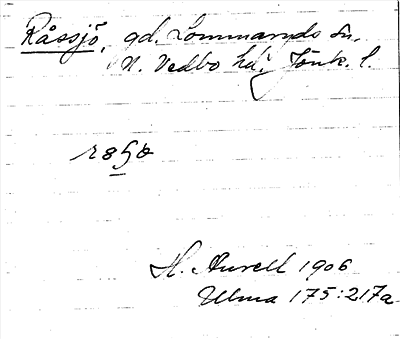 Råssjö, gd. Lommaryds sn.
N. Vedbo hd, Jönk. l.
H. Aurell 1906
Ulma 175:217a